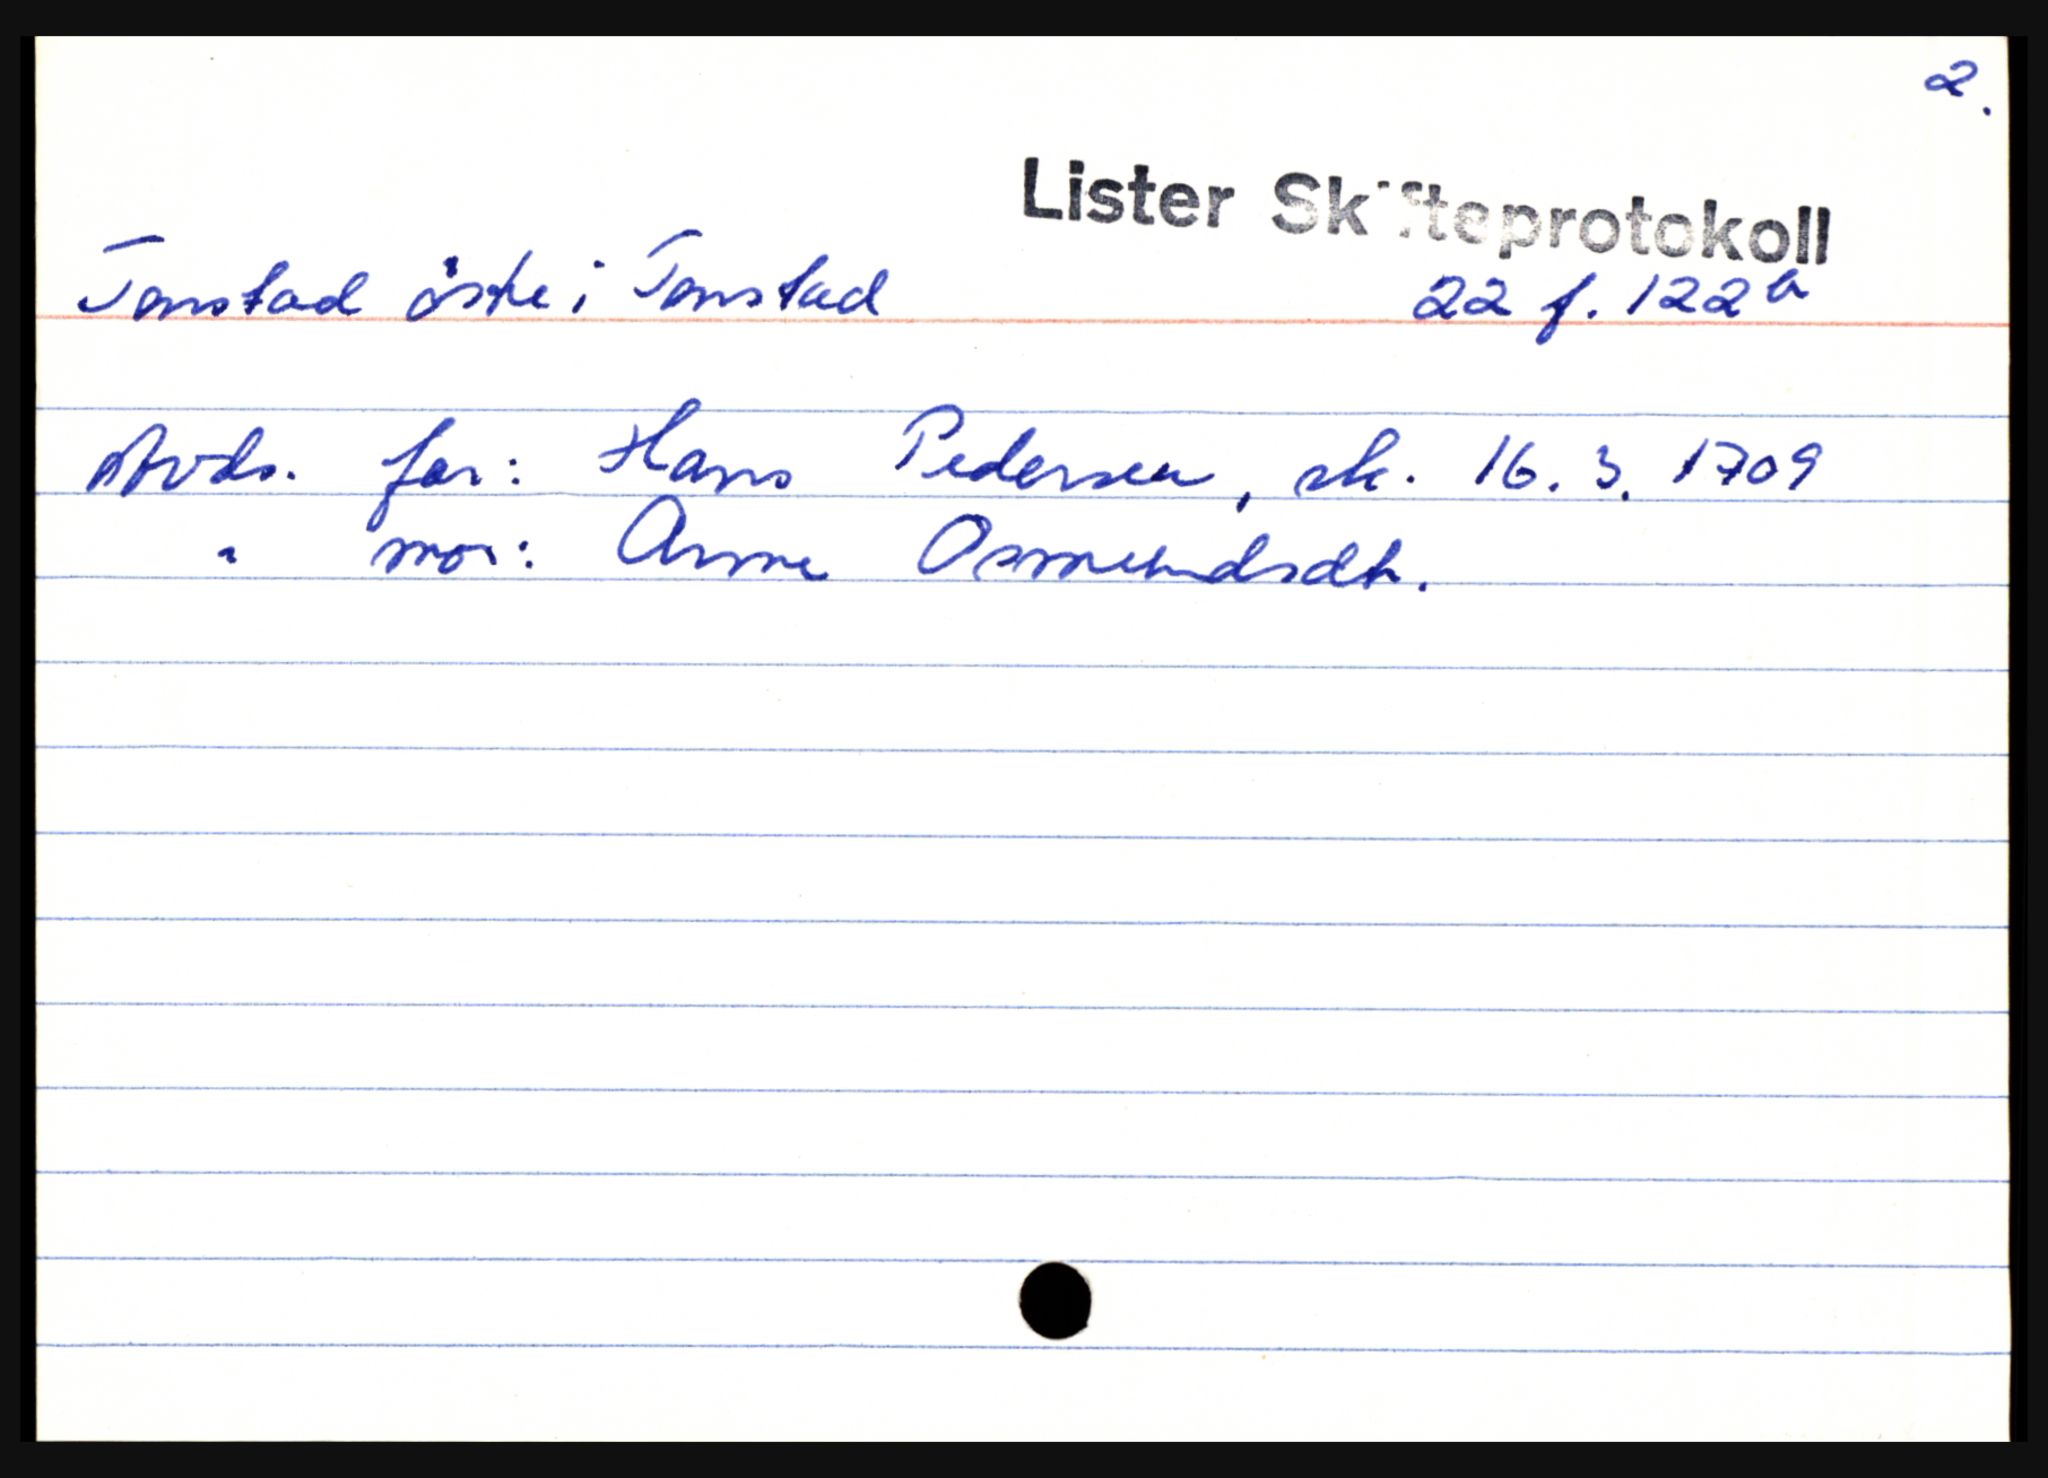 2.
Lister Skifteprotokoll
Tonstad östre i Tonstad 22 f. 122b
Avds. far: Hans Pedersen, sk. 16.3.1709
" mor: Anne Osmundsdtr.